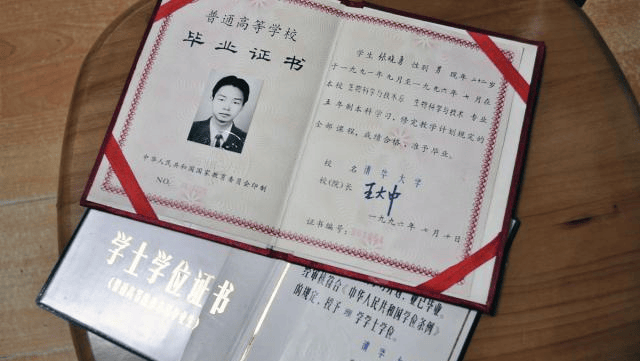 普通高等学校
毕业证书
中华人民共和国国家教育委员会印制
NO.
学生 张晓勇 性别 男 现年 二十二岁
于一九九一年九月至一九九六年七月在
本校 生物科学与技术系 生物科学与技术 专业
五年制本科学习,修完教学计划规定的
全部课程,成绩合格,准予毕业。
校名 清华大学
校(院)长 王大中
一九九六年七月十日
证书编号:
学士学位证书
经审核符合《中华人民共和国学位条例》
的规定,授予 理 学学士学位。
清华大